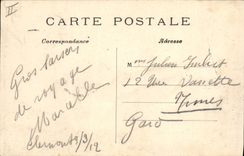 III
CARTE POSTALE
Correspondance
Adresse
Gros baisers
de voyage
Marcelle
Clermont 9/3/12
Mme Julien Imbert
12 Rue
Nimes
Gard